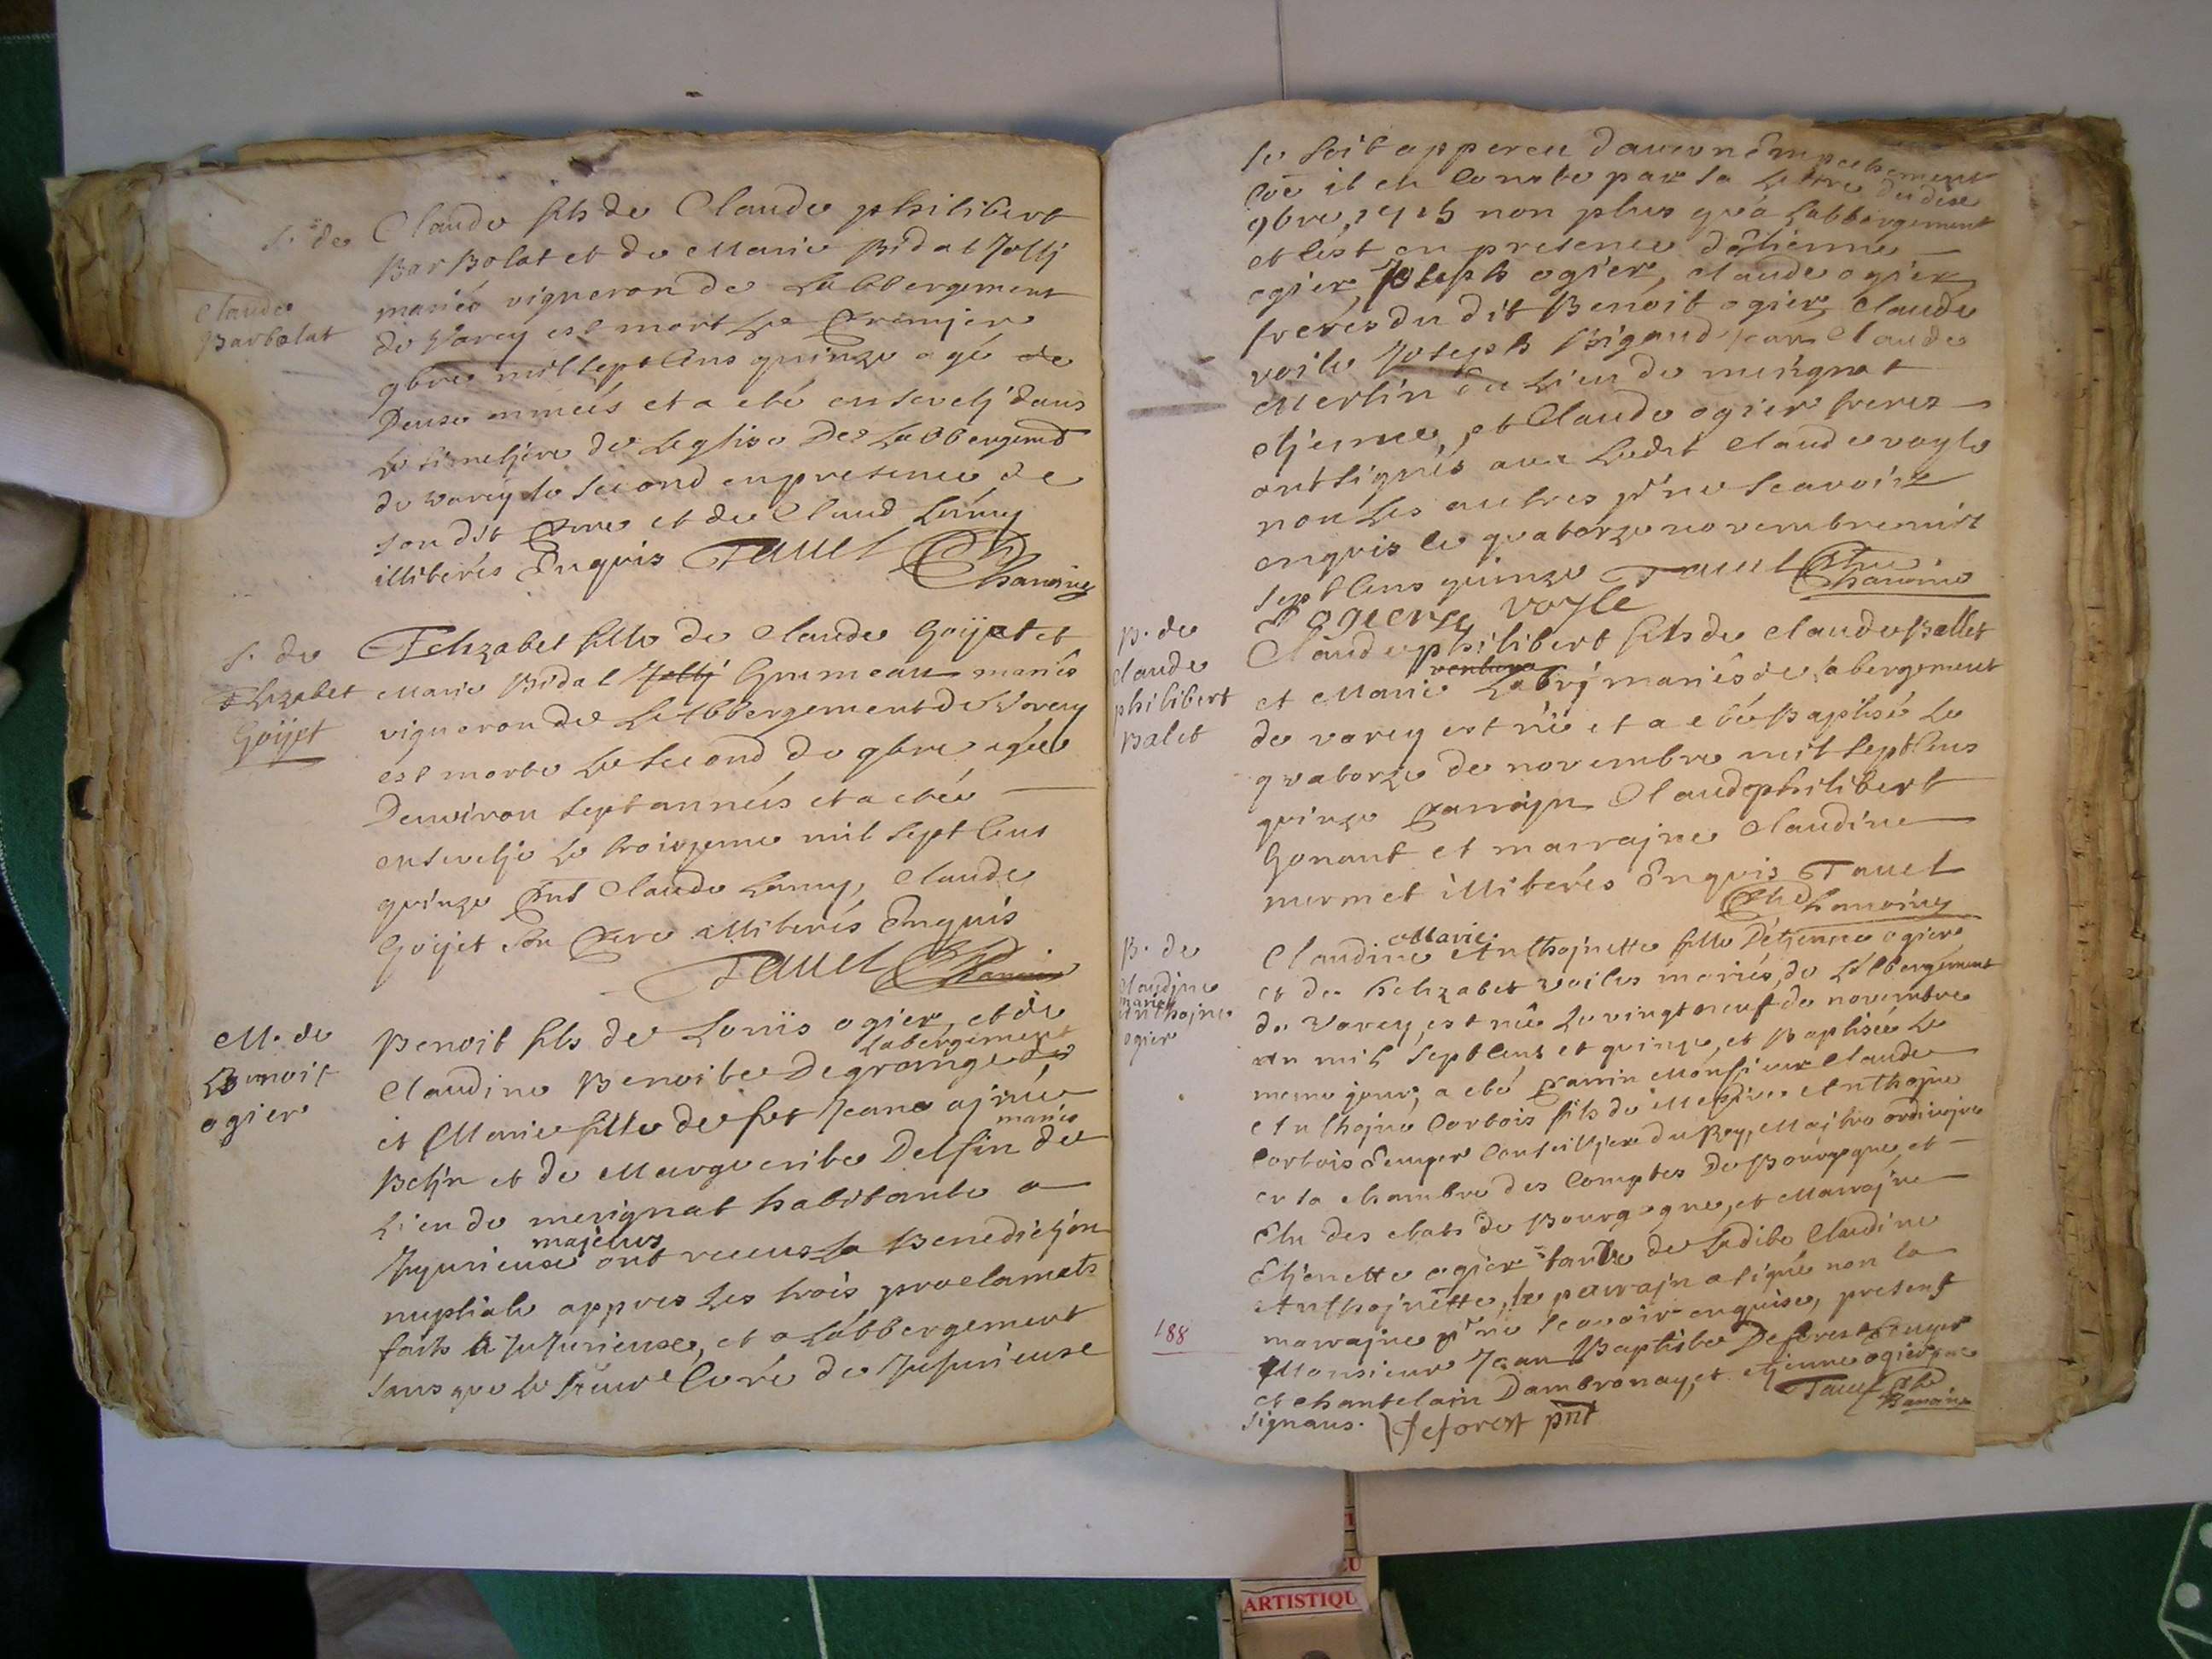 S. de
Claude
Barbolat
Claude fils de Claude philibert
Barbolat et de Marie Bidal Jolly
mariés vigneron de Labbergement
de Varey est mort Le premjer
9bre mil sept Cens quinze agé de
Deuse anneés et a eté ensevelj dans
Le simetjere de Leglise De Labbergemt
de varey le second en presence de
son dit pere et de Claud Lamy
illiterés Enquis Tavel
Chanoine
S. de
Elizabet
Goijet
Elizabet fille de Claude Goijet et
Marie Bidal Jolly Grumeau mariés
vigneron de LAbbergement de Varey
est morte Le second de 9bre agée
Denviron sept anneés et a etée
ensevelje Le troizieme mil sept Cens
quinze pnt Claude Lamy, Claude
Goijet son pere illiterés Enquis
Tavel Chanoine
M. de
Benoit
ogier
Benoit fils de Loüis ogier, et de
Labergement
Claudine Benoite Degrange de
et Marie fille de fet Jeane ajné
mariés
Beljn et de Marguerite Delfin de
Lieu de merignat habitante a
majeurs
Jujurieuse ont receus La Benedictjon
nuptiale appres Les trois proclamats
faits a Jujurieuse, et a Labbergement
sans que Le sieur Curé de Jujurieuse
se soit apperceu daucun Empechement
Coe il en Conste par sa Lettre du dixe
9bre 1715 non plus qu'a Labbergement
et c'est en presence d'etienne
ogier, Joseph ogier, claude ogier
freres du dit Benoit ogier Claude
voile Joseph Rigaud Jean Claude
Merlin du Lieu de merignat
etjenne, et Claude ogier freres
ont signés avec Ledit Claude voyle
non Les autres pr ne scavoir
enquis le quatorze novembre mil
sept Cens quinze Tavel pbre
Chanoine
E ogier voyle
B. de
claude
philibert
Balet
Claude philibert fils de Claude Ballet
et Marie Labry mariés de Labergement
de varey est né et a eté Baptisé Le
quatorze de novembre mil sept Cens
quinze parrajn Claude philibert
Gonant et marrajne Claudine
mermet illiterés Enquis Tavel
Chanoine
B. de
Claudjne
marie
Anthojne
ogier
Marie
Claudine Anthojnette fille D'etjenne ogier
et de Elizabet voiles mariés, de Labbergement
de Varey, est née Le vingt neuf de novembre
an mil sept Cens et quinze, et Baptisée Le
meme jour; a eté parrin Monsieur Claude
Anthojne Cortois fils de Messire Anthojne
Cortois Conseilljer du Roy, Majtre ordinajre
en la chambre des Comptes De Bourgogne, et
Elu des etats de Bourgogne, et Marrajne
Etjenette ogier tante de Ladite Claudine
Anthojnette, le parrajn a signé non la
marrajne pr ne scavoir enquise, present
Monsieur Jean Baptiste Deforest
et chantelain Dambronay, et etjenne ogier pere
signans. Deforest pnt
Tavel
Chanoine
188
ARTISTIQU